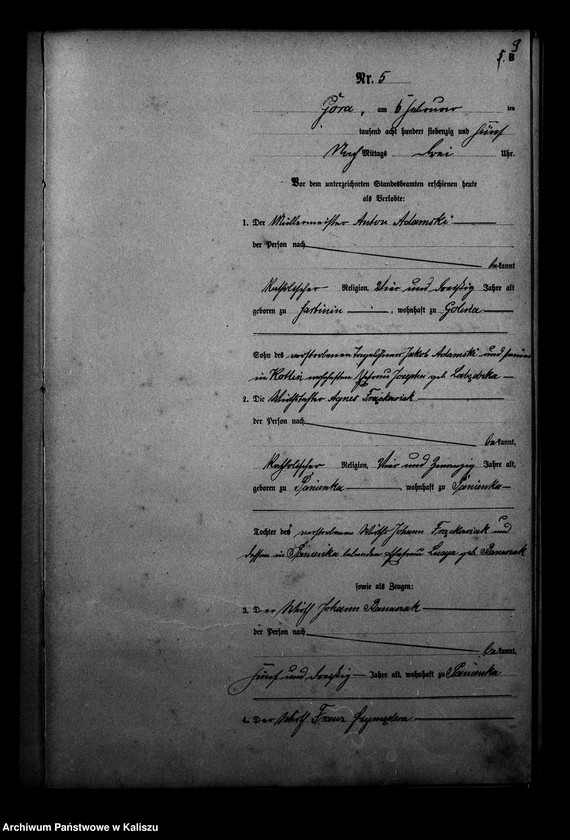 9
5. B
Nr. 5
Góra, am 6 Februar ten
tausend acht hundert siebenzig und fünf
Nach Mittags drei Uhr.
Vor dem unterzeichneten Standesbeamten erschienen heute
als Verlobte:
1. Der Müllermeister Anton Adamski
der Person nach
bekannt
Katholischer Religion, vier und dreißig Jahre alt
geboren zu , wohnhaft zu Golina
Sohn des verstorbenen Jakob Adamski und
in Kotlin wohnhaften Ehefrau geb
2. Die Wirthstochter Agnes Frąckowiak
der Person nach
bekannt,
Katholischer Religion, vier und zwanzig Jahre alt,
geboren zu Panienka , wohnhaft zu Panienka
Tochter des verstorbenen Wirths Johann Frąckowiak und
dessen in Panienka lebenden Ehefrau geb Banaszak
sowie als Zeugen:
3. Der Wirth Johann Banaszak
der Person nach
bekannt,
fünf und dreißig Jahre alt, wohnhaft zu Panienka
4. Der Wirth Franz
Archiwum Państwowe w Kaliszu